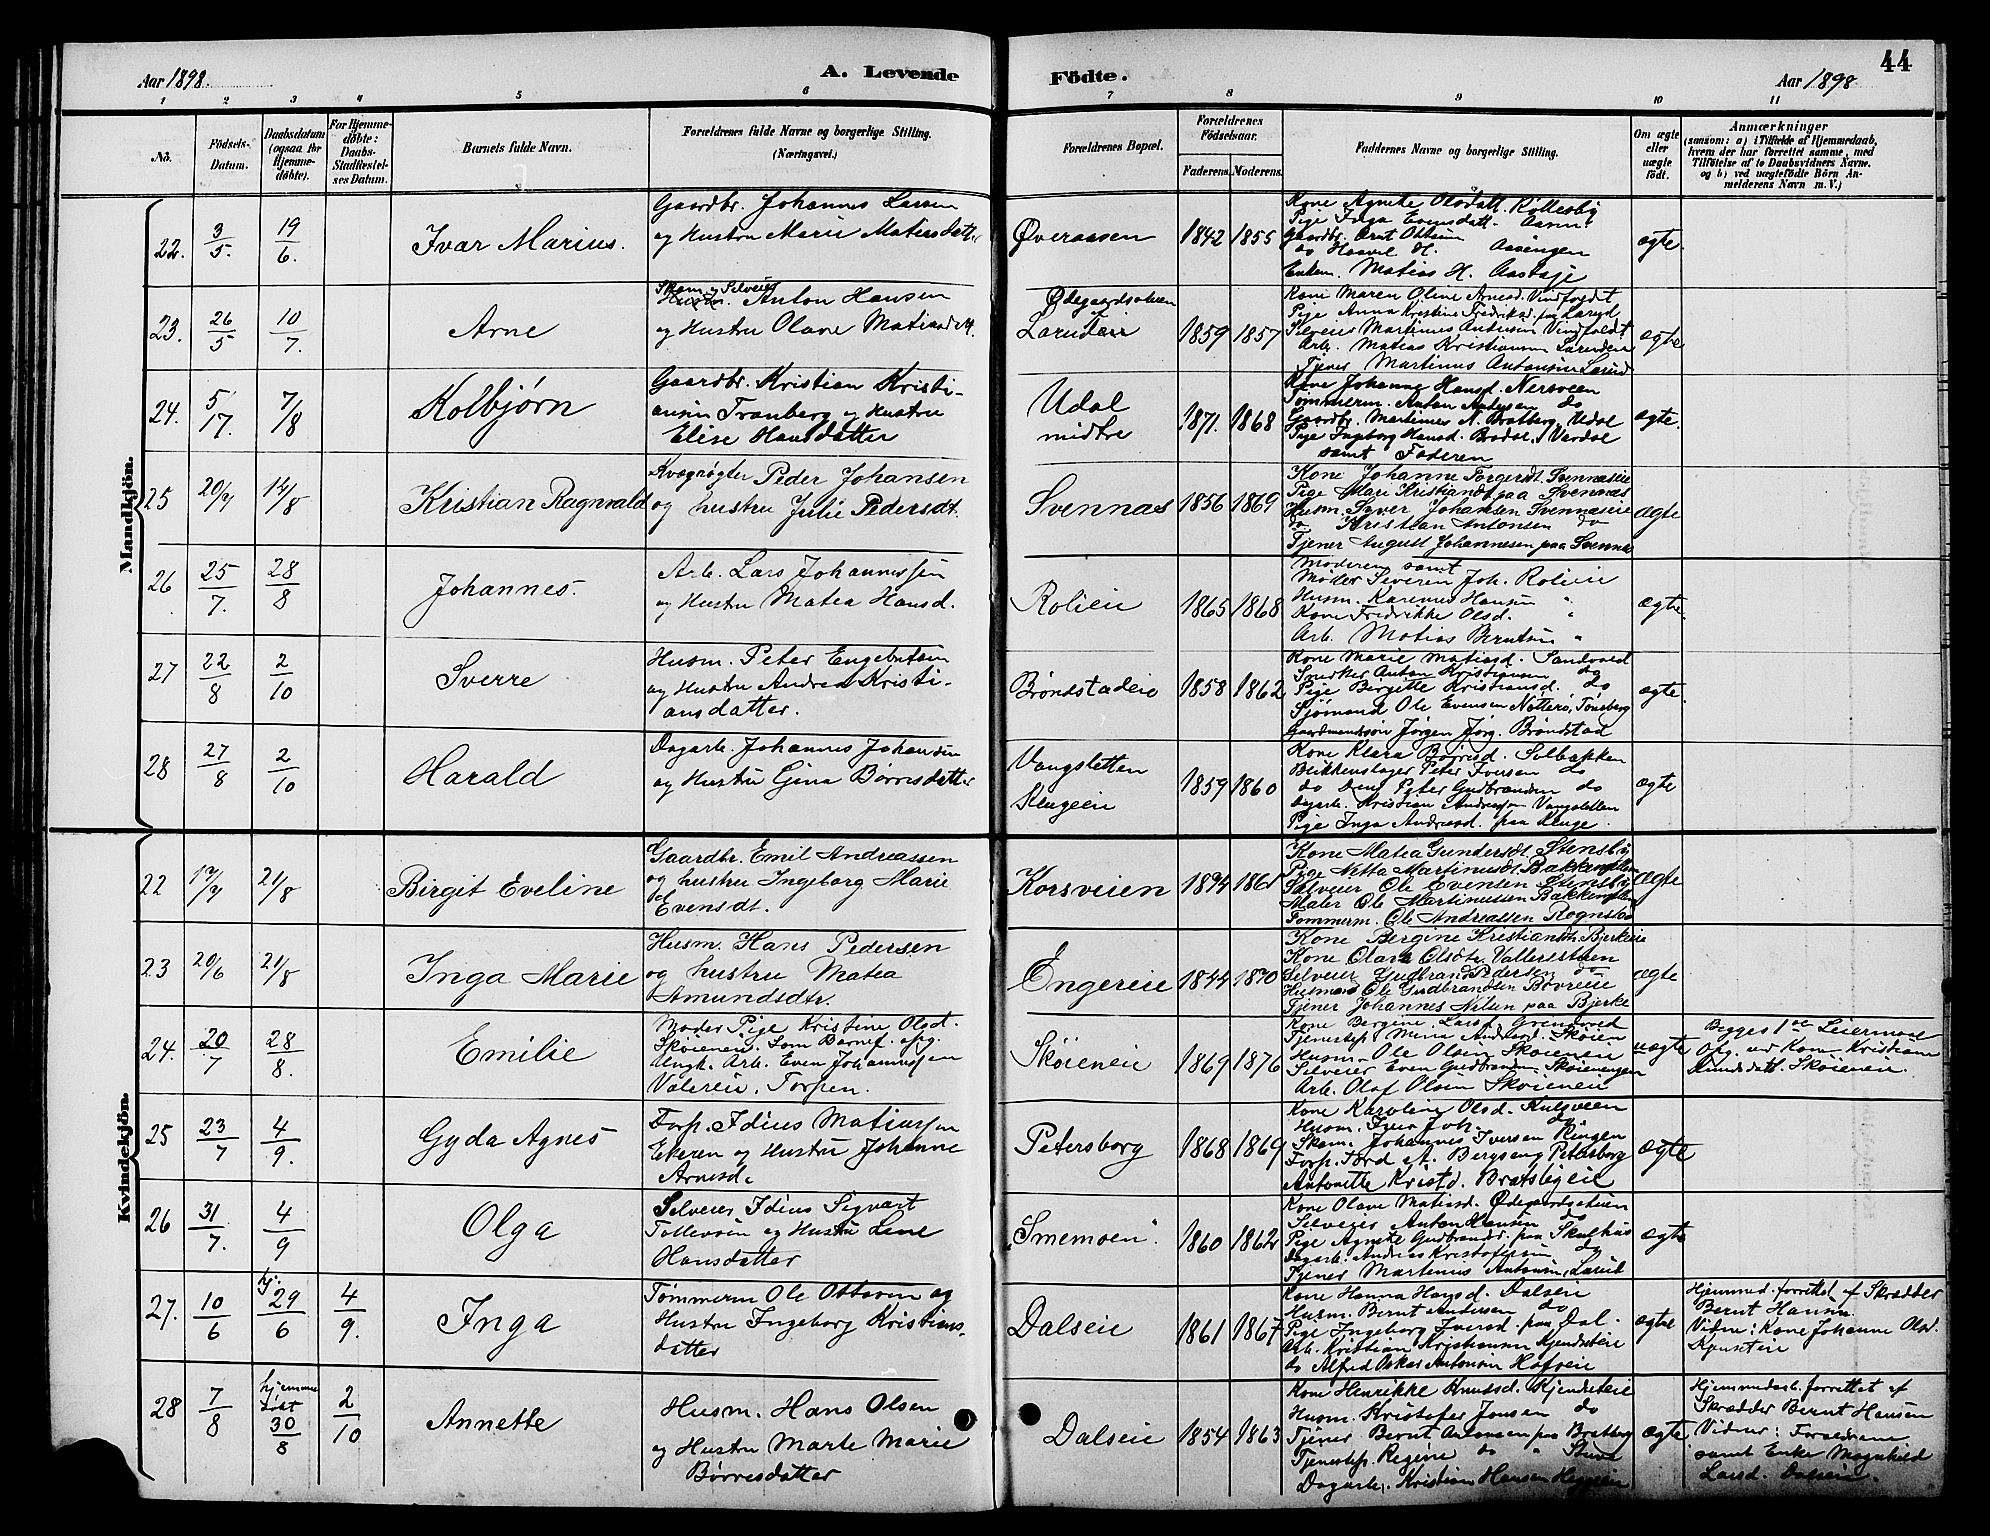 Aar 1898.
A. Levende Födte.
Aar 1898
44
1 2 3 4 5 6 7 8 9 10 11
No.
Födsels-
Datum.
Daabsdatum
(ogsaa for
Hjemme-
döbte).
For Hjemme-
döbte:
Daabs-
Stadfæstel-
ses Datum.
Barnets fulde Navn.
Forældrenes fulde Navne og borgerlige Stilling.
(Næringsvei.)
Forældrenes Bopæl.
Forældrenes
Födselsaar.
Faderens. Moderens.
Faddernes Navne og borgerlige Stilling.
Om ægte
eller
uægte
födt.
Anmærkninger
(saasom: a) i Tilfælde af Hjemmedaab,
hvem der har forrettet samme, med
Tilföielse af to Daabsvidners Navne.
og b) ved uægtefödte Börn An-
melderens Navn m. V.)
Mandkjön.
22. 3/5. 19/6. Ivar Marius.
Gaardbr. Johannes Larsen
og Hustru Marie Matiasdatter
Øveraasen 1842 1855
Kone Agnete Olsdatt. Røttesby
Pige Inga Evensdatt.
Gaardbr. Arnt Ottesen
do Haavel H. Aasengen
Enkem. Matias H.
ægte.
23. 26/5 10/7. Arne
Skom. og Selveier
Husm. Anton Hansen
og Hustru Olave Matiasdtt.
Ødegaardsstuen
Larudeie 1859 1857
Kone Maren Oline Arnesd. Vindfaldet
Pige Anna Kristine Fredriksd. paa Larud
Selveier Martinus Andersen Vindfaldet
Arb. Matias Kristiansen Larudeie
Tjener Martinus Antonsen Larud
ægte
24. 5/17. 7/8 Kolbjørn
Gaardbr. Kristian Kristi-
ansen Tranberg og Hustru
Elise Hansdatter
Udal
midtre 1871. 1868
Kone Johanne Hansd. Nersveen
Tømmerm. Anton Andersen do
Gaardbr. Martinius N. Bratberg, Udal
Pige Ingeborg Hansd. Brodal, Værdal
samt Faderen
ægte.
25 20/7 14/8 Kristian Ragnvald
Kvægrøgter Peder Johansen
og hustru Julie Pedersdt.
Svennæs 1856 1869
Kone Johanne Torgersdt. Svennæseie
Pige Mari Kristiansdt. paa Svennæs
Husm. Syver Johansen Svennæseie
do Kristian Antonsen do
Tjener August Johannesen paa Svennæs
ægte
26 25/7. 28/8 Johannes.
Arb. Lars Johannessen
og Hustru Matea Hansd.
Rolieie 1865 1868
Moderen samt
Møder Severen Joh. Rolieie
Husm. Karenus Hansen "
Kone Fredrikke Olsd. "
Arb. Matias Berntsen "
ægte.
27 22/8 2/10 Sverre
Husm. Peter Engebretsen
og Hustru Andrea Kristi-
ansdatter.
Brøndstadeie 1858 1862
Kone Marie Matiasd. Sandvold
Snedker Anton Kristiansen do
Pige Birgitte Kristiansd. do
Sjømand Ole Evensen Nøtterø, Tønsberg
Gaardmandssøn Jørgen Jørg. Brøndstad
ægte.
28 27/8 2/10 Harald
Dagarb. Johannes Johansen
og Hustru Gina Børresdatter
Vangsletten
Klugeeie 1859 1860
Kone Klara Solbakken
Blikkenslager Peter Iversen do
do Peter Gudbrandsen do
Dagarb. Kristian Andreassen Vangsletten
Pige Inga Andreasd. paa Kluge.
ægte
Kvindekjön.
22 17/7 21/8 Birgit Eveline
Gaardbr. Emil Andreassen
og hustru Ingeborg Marie
Evensdt.
Korsveien 1874 1861
Kone Matea Gundersdt. Stensby
Pige Netta Martinusdt. Bakkengen
Selveier Ole Evensen Stensby
Maler Ole Martinussen Bakkengen
Tømmerm. Ole Andreassen Rognstad
ægte
23 20/6 21/8 Inga Marie
Husm. Hans Pedersen
og hustru Matea
Amundsdtr.
Engereie 1844 1870
Kone Bergine Kristiansdt. Bjerkeie
Kone Olava Olsdtr. Vallersstuen
Selveier Gudbrand Pedersen do
Husmand Ole Gudbrandsen Bovreeie
Tjener Johannes Nilsen paa Bjerke
ægte
24. 20/7 28/8. Emilie
Moder Pige Kristine Olsd.
Skøieneie. Som Barnef. opg.
Ungk. Arb. Even Johannessen
Valereie, Torpen.
Skøieneie 1869 1876
Kone Bergine Larsd. Grønvold
Tjenestep. Mina Andersd. Skøien
Husm. Ole Olsen Skøieneie
Selveier Even Gudbrandsen Skøienengen
Arb. Olaf Olsen Skøieneie
uægte
Begges 1ste Leiermaal
Opg. ved Kone Kristiane
Amundsdatt. Skøieneie.
25 23/7 4/9. Gyda Agnes
Forp. Idius Matiassen
Ekeren og Hustru Johanne
Arnesd.
Petersborg 1868 1869
Kone Karoline Olsd. Kulsveen
Husm. Iver Joh. do
Skom. Johannes Iversen Ringen
Forp. Tord Bergseng Petersborg
Antonette Kristd. Bratsbegeie
ægte
26 31/7. 4/9 Olga
Selveier Idius Sigvart
Tollevsen og Hustru Lene
Hansdatter
Smemoen 1860 1862
Kone Olave Matiasd. Ødegaardsstuen
Selveier Anton Hansen do
Pige Agnete Gudbrandsd. paa Skulhus
Dagarb. Andreas Kristofersen do
Tjener Martinius Antonsen, Larud
ægte
27. 10/6 hj. 29/6 4/9. Inga
Tømmerm. Ole Ottesen og
Hustru Ingeborg Kristians-
datter
Dalseie 1861 1867
Kone Hanna Hansd. Dalseie
Husm. Bernt Andersen do
Pige Ingeborg Iversd. paa Dal.
Arb. Kristian Kristiansen Kjendseteie
do Alfred Oskar Antonsen Hofseie
ægte
Hjemmed. forrettet af Skrædder
Bernt Hansen.
Vidne: Kone Johanne Olsd.
28 7/8 hjemme
døbt
30/8 2/10 Annette
Husm. Hans Olsen
og Hustru Marte Marie
Børresdatter
Dalseie 1854 1863
Kone Henrikke Knudsd. Kjendseteie
Husm. Kristofer Jonsen do
Tjener Bernt Antonsen paa Bratberg
Tjenestep. Regine do
Dagarb. Kristian Hansen
ægte
Hjemmedaab. forrettet af
Skrædder Bernt Hansen
Vidner: Forældrene
samt Enke Magnhild
Larsd. Dalseie.